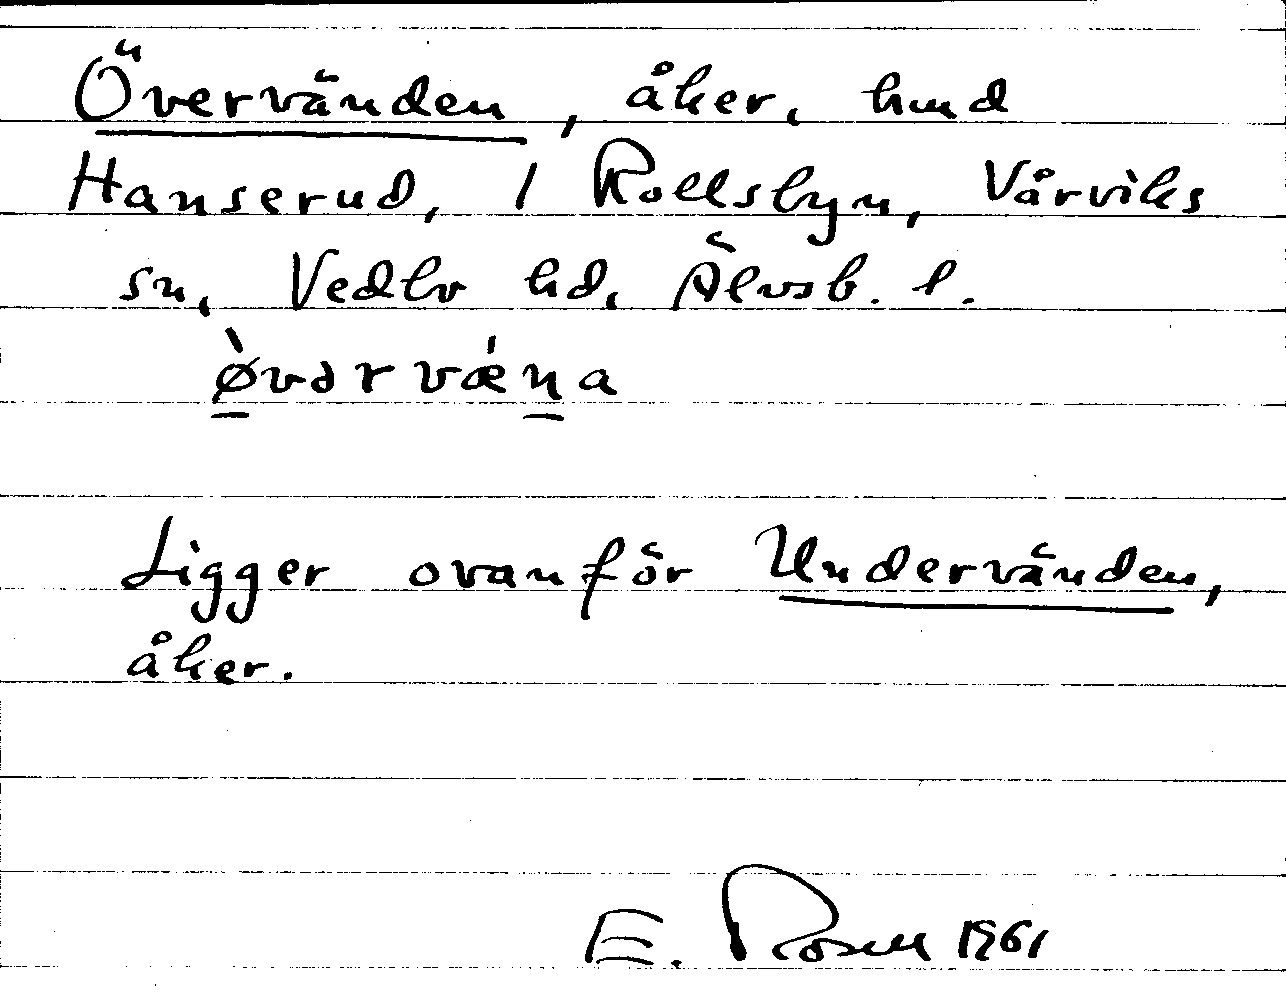 Övervänden, åker, hmd
Hanserud, 1 Rollsbyn, Vårviks
sn, Vedbo hd, Älvsb. l.
ø̀vərvǽna
Ligger ovanför Undervänden,
åker.
E. Rosell 1961